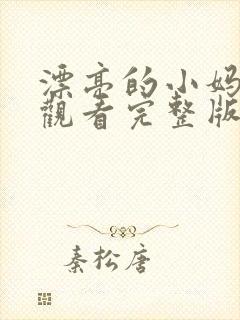 漂亮的小妈
觀看完整版
秦松唐